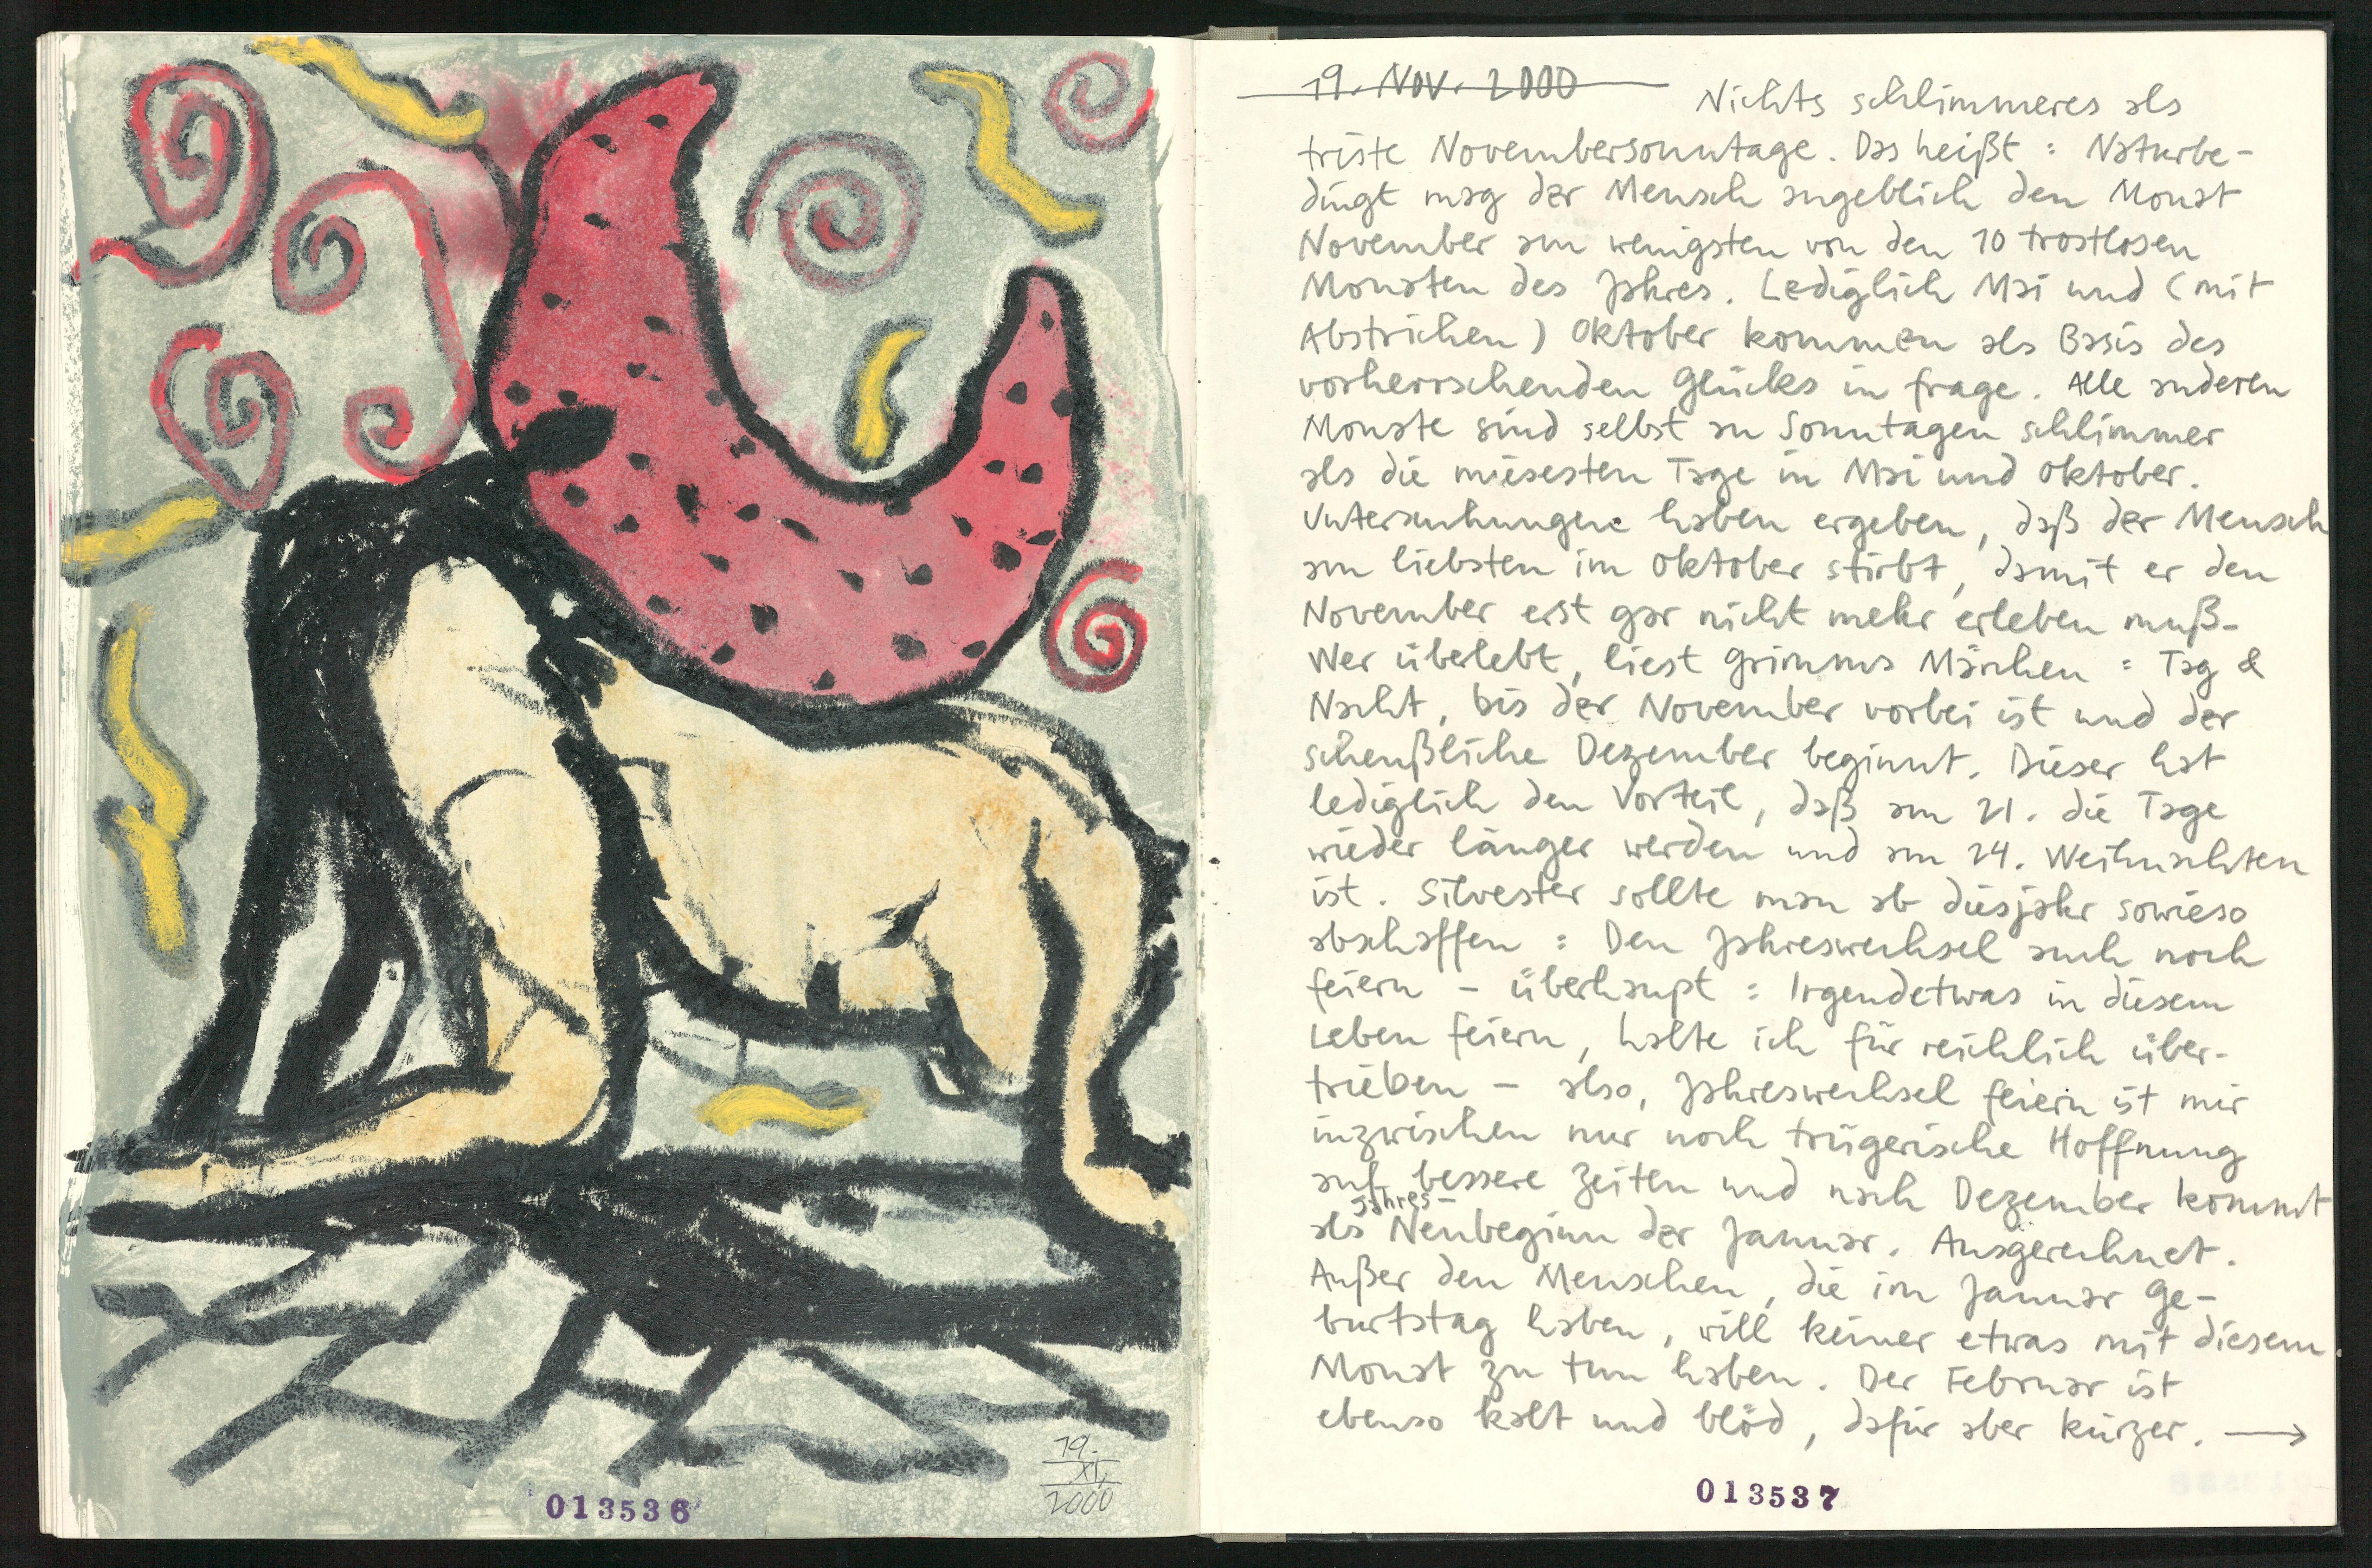 19.
XI.
2000
013536
19. Nov. 2000 Nichts schlimmeres als
triste Novembersonntage. Das heißt : Naturbe-
dingt mag der Mensch angeblich den Monat
November am wenigsten von den 10 trostlosen
Monaten des Jahres. Lediglich Mai und (mit
Abstrichen) Oktober kommen als Basis des
vorherrschenden Glücks in frage. Alle anderen
Monate sind selbst an Sonntagen schlimmer
als die miesesten Tage in Mai und Oktober.
Untersuchungen haben ergeben, daß der Mensch
am liebsten im Oktober stirbt, damit er den
November erst gar nicht mehr erleben muß.
Wer überlebt, liest Grimms Märchen : Tag &
Nacht, bis der November vorbei ist und der
scheußliche Dezember beginnt. Dieser hat
lediglich den Vorteil, daß am 21. die Tage
wieder länger werden und am 24. Weihnachten
ist. Silvester sollte man ab diesjahr sowieso
abschaffen : Den Jahreswechsel auch noch
feiern – überhaupt : Irgendetwas in diesem
Leben feiern, halte ich für reichlich über-
trieben – also, Jahreswechsel feiern ist mir
inzwischen nur noch trügerische Hoffnung
auf bessere Zeiten und nach Dezember kommt
als Jahres-Neubeginn der Januar. Ausgerechnet.
Außer den Menschen, die im Januar Ge-
burtstag haben, will keiner etwas mit diesem
Monat zu tun haben. Der Februar ist
ebenso kalt und blöd, dafür aber kürzer. →
013537